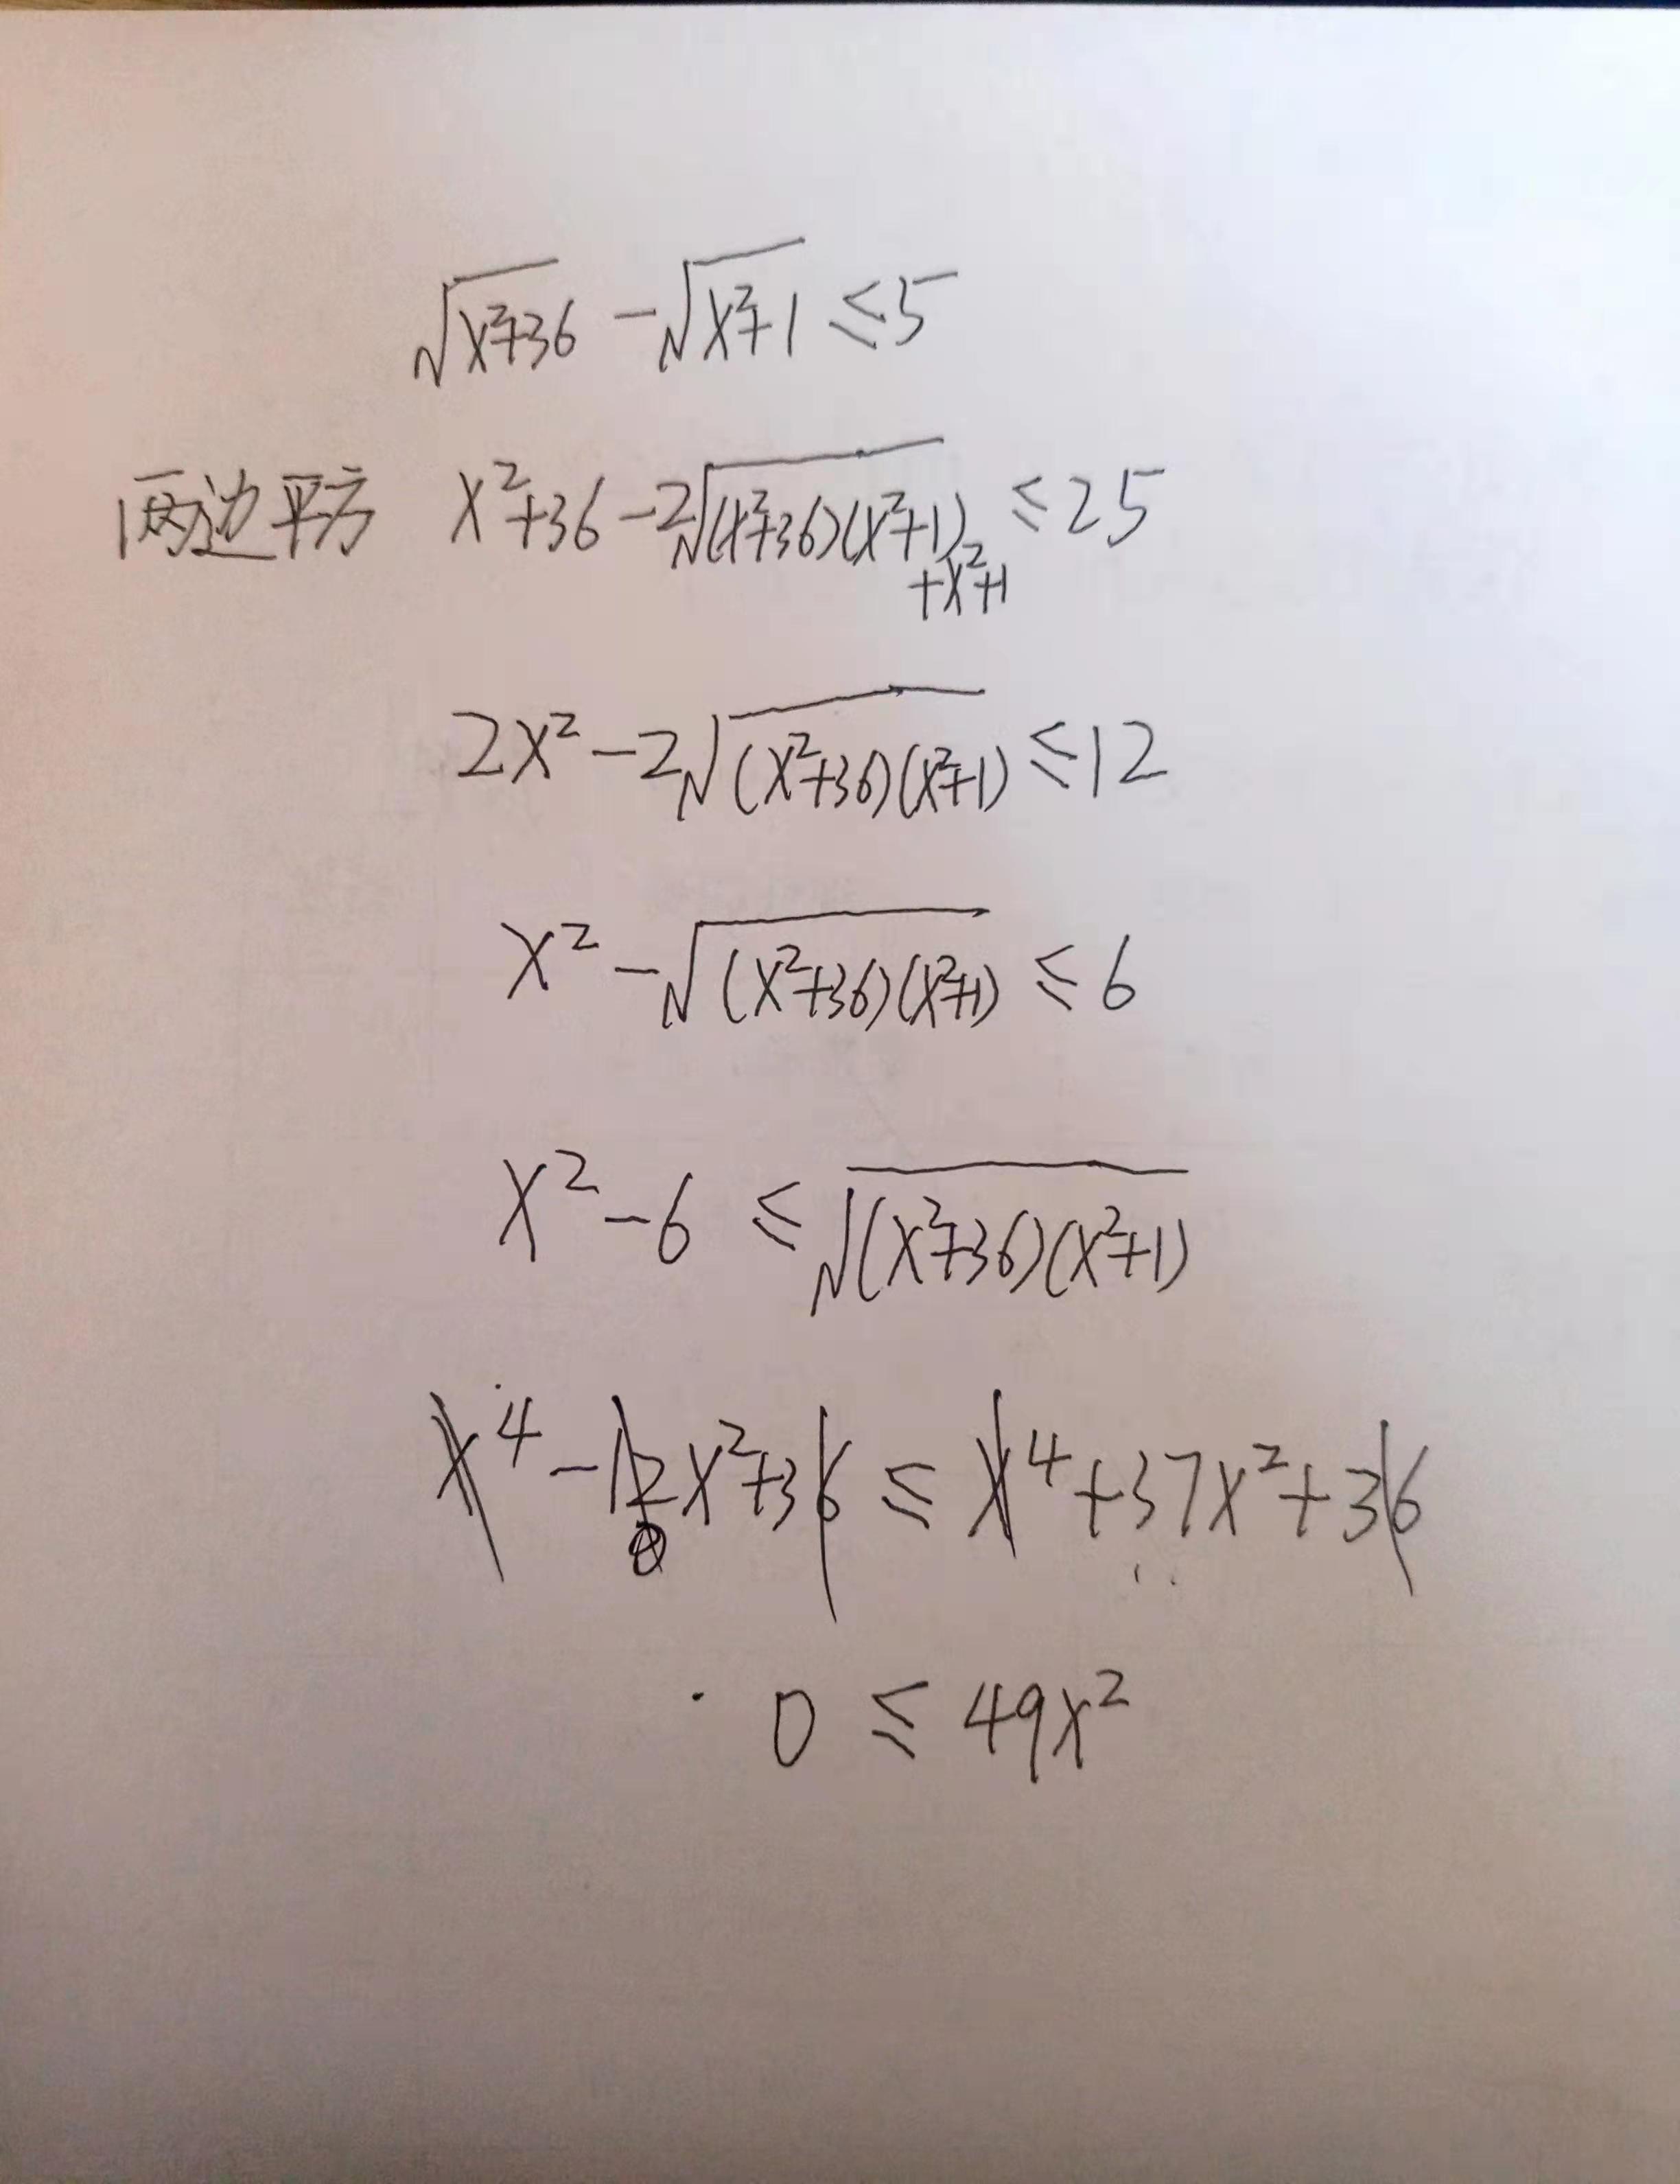 √(x²+36) - √(x²+1) ≤ 5
两边平方 x²+36 - 2√((x²+36)(x²+1)) + x²+1 ≤ 25
2x² - 2√((x²+36)(x²+1)) ≤ 12
x² - √((x²+36)(x²+1)) ≤ 6
x² - 6 ≤ √((x²+36)(x²+1))
x⁴ - 12x² + 36 ≤ x⁴ + 37x² + 36
0 ≤ 49x²